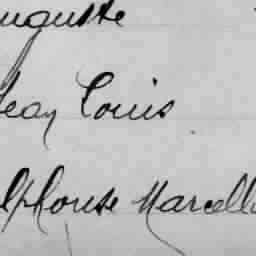 uguste
Jean Louis
Alphonse Marcelli